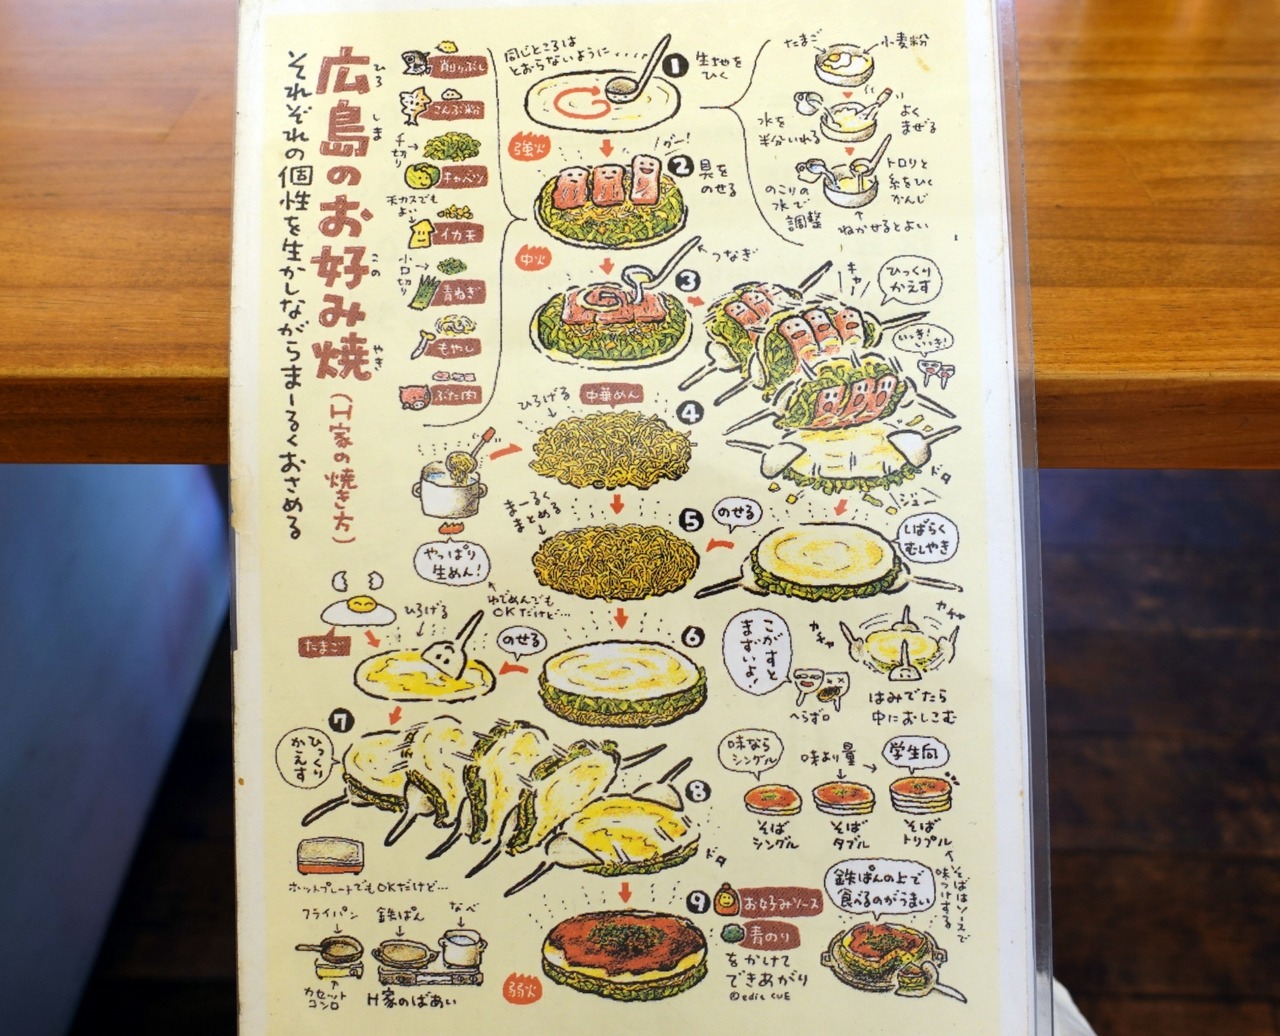 広島のお好み焼(H家の焼き方)
ひろ しま このみ やき
それぞれの個性を生かしながらまーるくおさめる
削りぶし
こんぶ粉
千切り
キャベツ
天カスでも
よい
イカ天
小口切り
青ねぎ
もやし
ぶた肉
同じところは
とおらないように・・・・・
1
生地を
ひく
たまご
小麦粉
水を
半分いれる
よく
まぜる
のこりの
水で
調整
トロリと
糸をひく
かんじ
ねかせるとよい
強火
2
グー!
具を
のせる
中火
3
つなぎ
キャー
ひっくり
かえす
いっき!
いっき!
ドタ
ジュー
4
ひろげる
中華めん
やっぱり
生めん!
ゆでめんでも
OKだけど…
まーるく
まとめる
5
のせる
しばらく
むしやき
カチャ
カチャ
こがすと
まずいよ!
へらズロ
はみでたら
中におしこむ
6
のせる
たまご
ひろげる
7
ひっくり
かえす
8
ドタ
味なら
シングル
味より量
学生向
そば
シングル
そば
ダブル
そば
トリプル
そばはソースで
味つけする
ホットプレートでもOKだけど…
フライパン
鉄ぱん
なべ
カセット
コンロ
H家のばあい
弱火
9
お好みソース
青のり
をかけて
できあがり
©edit CUE
鉄ぱんの上で
食べるのがうまい